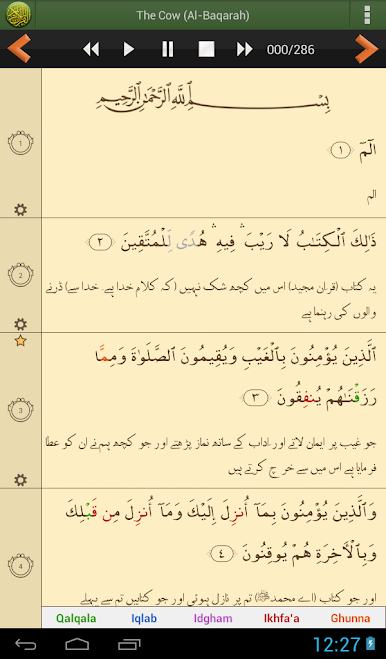 The Cow (Al-Baqarah)
000/286
بِسْمِ ٱللَّهِ ٱلرَّحْمَٰنِ ٱلرَّحِيمِ
1
الٓمٓ ﴿١﴾
الم
2
ذَٰلِكَ ٱلْكِتَٰبُ لَا رَيْبَ ۛ فِيهِ ۛ هُدًى لِّلْمُتَّقِينَ ﴿٢﴾
یہ کتاب (قران مجید) اس میں کچھ شک نہیں (کہ کلام خدا ہے۔ خدا سے) ڈرنے
والوں کی رہنما ہے
3
ٱلَّذِينَ يُؤْمِنُونَ بِٱلْغَيْبِ وَيُقِيمُونَ ٱلصَّلَوٰةَ وَمِمَّا
رَزَقْنَٰهُمْ يُنفِقُونَ ﴿٣﴾
جو غیب پر ایمان لاتے اور آداب کے ساتھ نماز پڑھتے اور جو کچھ ہم نے ان کو عطا
فرمایا ہے اس میں سے خرچ کرتے ہیں
4
وَٱلَّذِينَ يُؤْمِنُونَ بِمَآ أُنزِلَ إِلَيْكَ وَمَآ أُنزِلَ مِن قَبْلِكَ
وَبِٱلْءَاخِرَةِ هُمْ يُوقِنُونَ ﴿٤﴾
اور جو کتاب (اے محمدﷺ) تم پر نازل ہوئی اور جو کتابیں تم سے پہلے
Qalqala Iqlab Idgham Ikhfa'a Ghunna
12:27